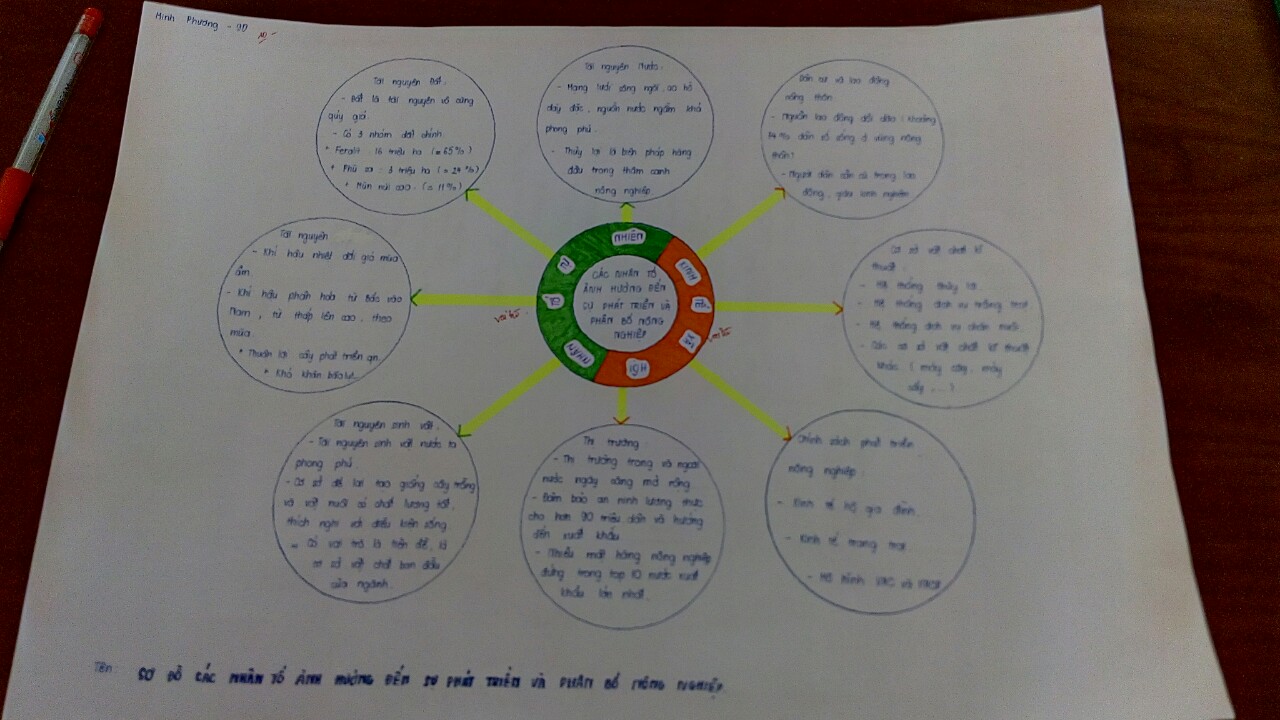 Minh Phương - 9D
Tài nguyên Đất:
- Đất là tài nguyên vô cùng
quý giá.
- Có 3 nhóm đất chính.
* Feralit: 16 triệu ha (= 65%)
* Phù sa: 3 triệu ha (= 24%)
* Mùn núi cao: (= 11%)
Tài nguyên Nước:
- Mạng lưới sông ngòi, ao hồ
dày đặc, nguồn nước ngầm khá
phong phú.
- Thủy lợi là biện pháp hàng
đầu trong thâm canh
nông nghiệp.
Dân cư và lao động
nông thôn:
- Nguồn lao động dồi dào (khoảng
74% dân số sống ở vùng nông
thôn)
- Người dân cần cù trong lao
động, giàu kinh nghiệm
Tài nguyên
- Khí hậu nhiệt đới gió mùa
ẩm.
- Khí hậu phân hoá từ Bắc vào
Nam, từ thấp lên cao, theo
mùa.
* Thuận lợi cây phát triển
* Khó khăn bão lụt...
NHIÊN
TỰ
TỐ
NHÂN
KINH
TẾ
XÃ
HỘI
CÁC NHÂN TỐ
ẢNH HƯỞNG ĐẾN
SỰ PHÁT TRIỂN VÀ
PHÂN BỐ NÔNG
NGHIỆP
vai trò
Cơ sở vật chất kĩ
thuật:
- Hệ thống thủy lợi.
- Hệ thống dịch vụ trồng trọt
- Hệ thống dịch vụ chăn nuôi.
- Các cơ sở vật chất kĩ thuật
khác (máy cày, máy
cấy,...)
Tài nguyên sinh vật:
- Tài nguyên sinh vật nước ta
phong phú.
- Cơ sở để lai tạo giống cây trồng
và vật nuôi có chất lượng tốt,
thích nghi với điều kiện sống.
Có vai trò là tiền đề, là
cơ sở vật chất ban đầu
của ngành.
Thị trường
- Thị trường trong và ngoài
nước ngày càng mở rộng
- Đảm bảo an ninh lương thực
cho hơn 90 triệu dân và hướng
đến xuất khẩu
- Nhiều mặt hàng nông nghiệp
đứng trong top 10 nước xuất
khẩu lớn nhất.
Chính sách phát triển
nông nghiệp:
- Kinh tế hộ gia đình.
- Kinh tế trang trại
- Mô hình VAC và
Tên: SƠ ĐỒ CÁC NHÂN TỐ ẢNH HƯỞNG ĐẾN SỰ PHÁT TRIỂN VÀ PHÂN BỐ NÔNG NGHIỆP.